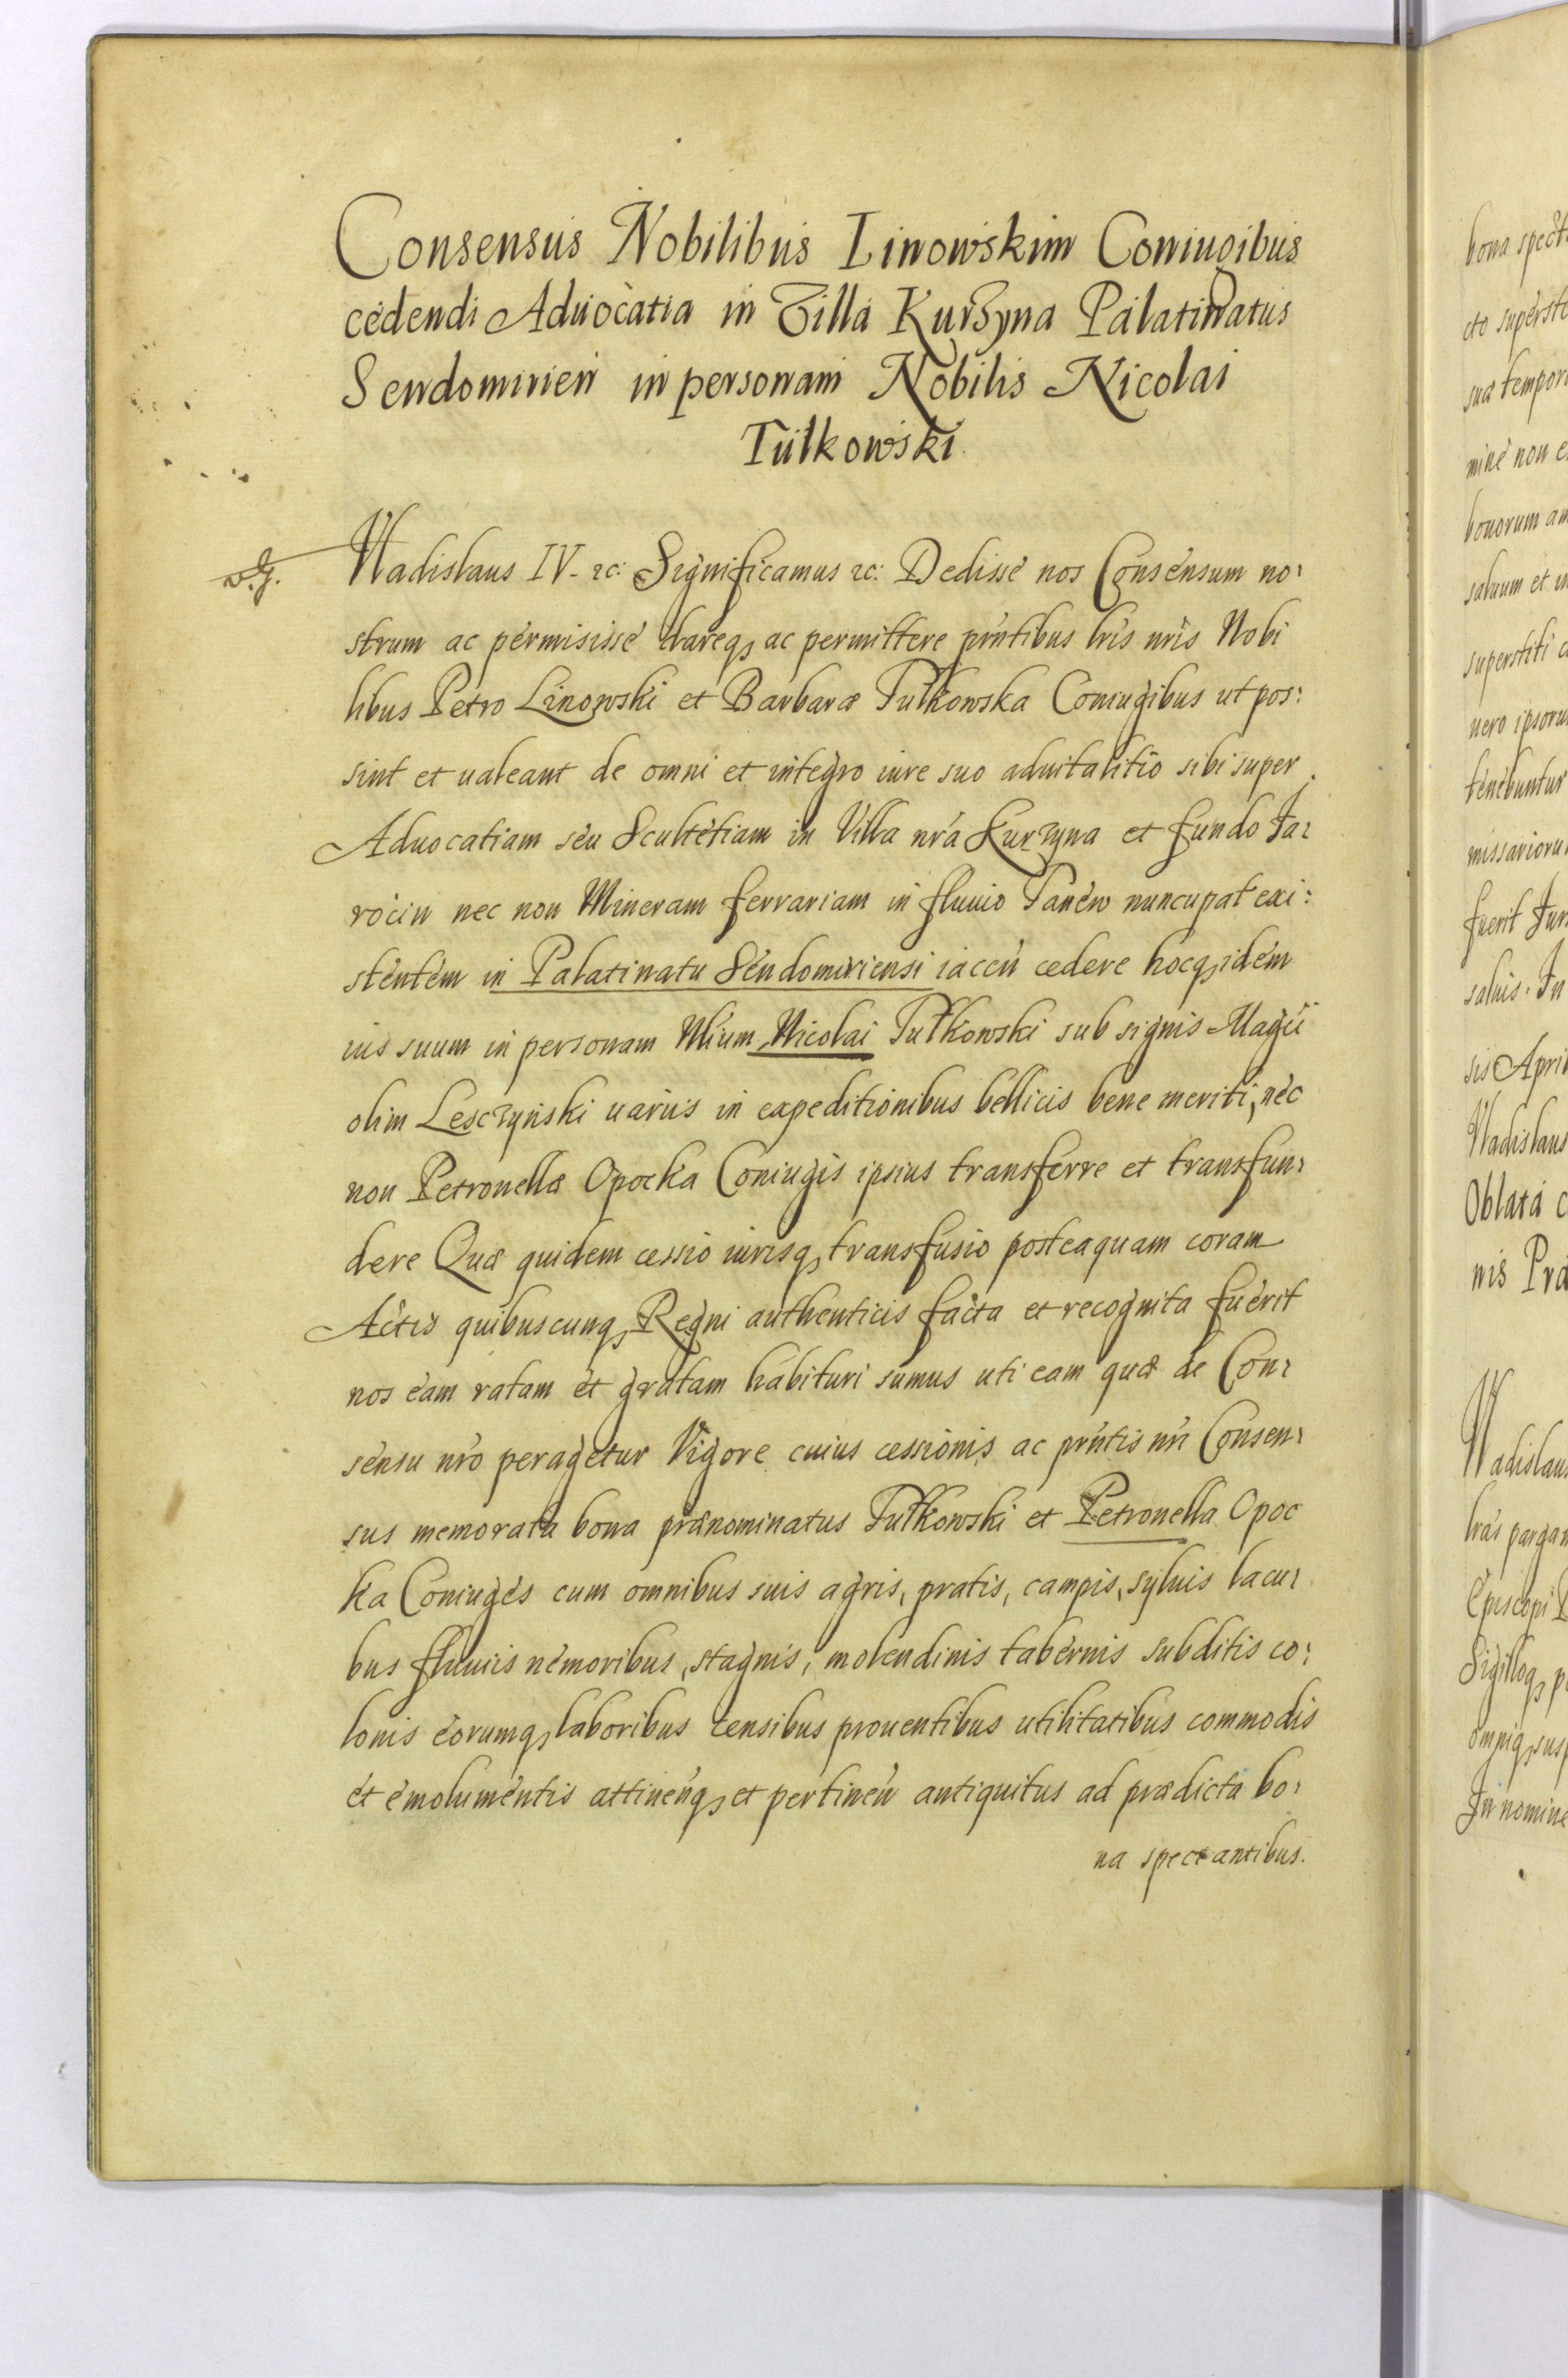 Consensus Nobilibus Linowskim Coniugibus
cedendi Aduocatia in Villa Kurzyna Palatinatus
Sendomirien in personam Nobilis Nicolai
Tułkowski.
Vladislaus IV. zc: Significamus zc: Dedisse nos Consensum no:
strum ac permisisse dareq, ac permittere pńtibus lris nris Nobi
libus Petro Linowski et Barbaræ Tułkowska Coniugibus ut pos:
sint et ualeant de omni et integro iure suo aduitalitio sibi super
Aduocatiam seu Scultetiam in Villa nra Kurzyna et fundo Ja:
rocin nec non Mineram ferrariam in fluuio Tanew nuncupat exi:
stentem in Palatinatu Sendomiriensi iaceń cedere hocq, idem
ius suum in personam Nlium Nicolai Tułkowski sub signis Magci
olim Lesczyński uariis in expeditionibus bellicis bene meriti, nec
non Petronellæ Opocka Coniugis ipsius transferre et transfun:
dere Quæ quidem cessio iurisq, transfusio posteaquam coram
Actis quibuscunq, Regni authenticis facta et recognita fuerit
nos eam ratam et gratam habituri sumus uti eam quæ de Con:
sensu nro peragetur Vigore cuius cessionis ac pńtis nri Consen:
sus memorata bona prænominatus Tułkowski et Petronella Opoc
ka Coniuges cum omnibus suis agris, pratis, campis, syluis lacu:
bus fluuiis nemoribus, stagnis, molendinis tabernis subditis co:
lonis eorumq, laboribus censibus prouentibus utilitatibus commodis
et emolumentis attineńq, et pertineń antiquitus ad prædicta bo:
na spectantibus.
bona spect
cto superst
sua tempor
mine non e
bonorum am
saluum et in
superstiti
uero ipsoru
tenebuntur
missarioru
fuerit Jur
saluis. In
sis Apri
Vladislaus
Oblata c
nis Præ
Vladislaus
lras pargam
Episcopi
Sigilloq, p
omniq, susp
In nomine